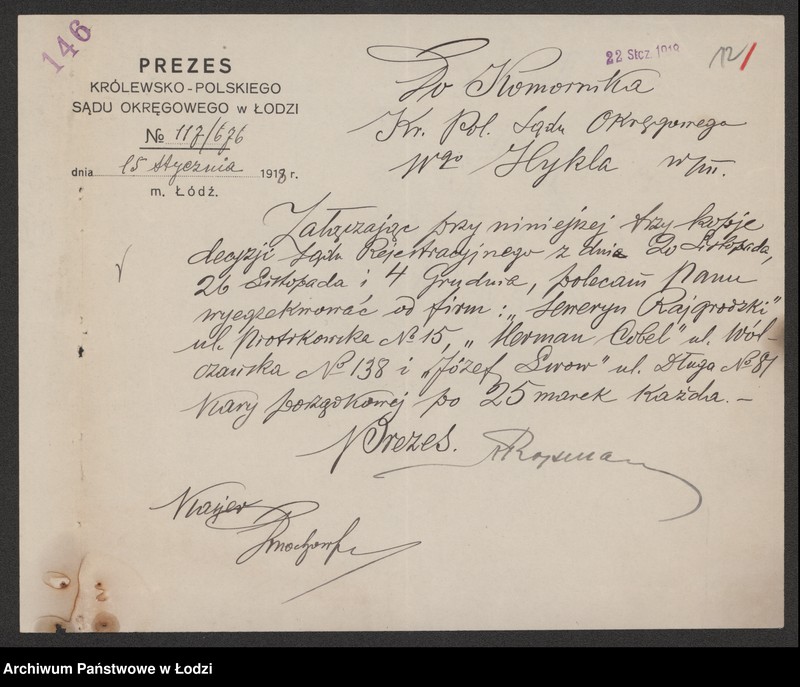 146
PREZES
KRÓLEWSKO-POLSKIEGO
SĄDU OKRĘGOWEGO w ŁODZI
№ 117/676
dnia 15 stycznia 1918 r.
m. Łódź.
22 Stcz. 1918
12/
Do Komornika
Kr. Pol. Sądu Okręgowego
Wgo Hykla w/m.
Załączając przy niniejszej trzy kopje
decyzji Sądu Rejestracyjnego z dnia 20 Listopada,
26 Listopada i 4 Grudnia, polecam Panu
wyegzekwować od firm: „Seweryn Rajgrodzki"
ul. Piotrkowska № 15, „Herman Cobel" ul. Wól-
czańska № 138 i „Józef Lwow" ul. Długa № 81
kary porządkowej po 25 marek każda. —
Prezes.
Archiwum Państwowe w Łodzi